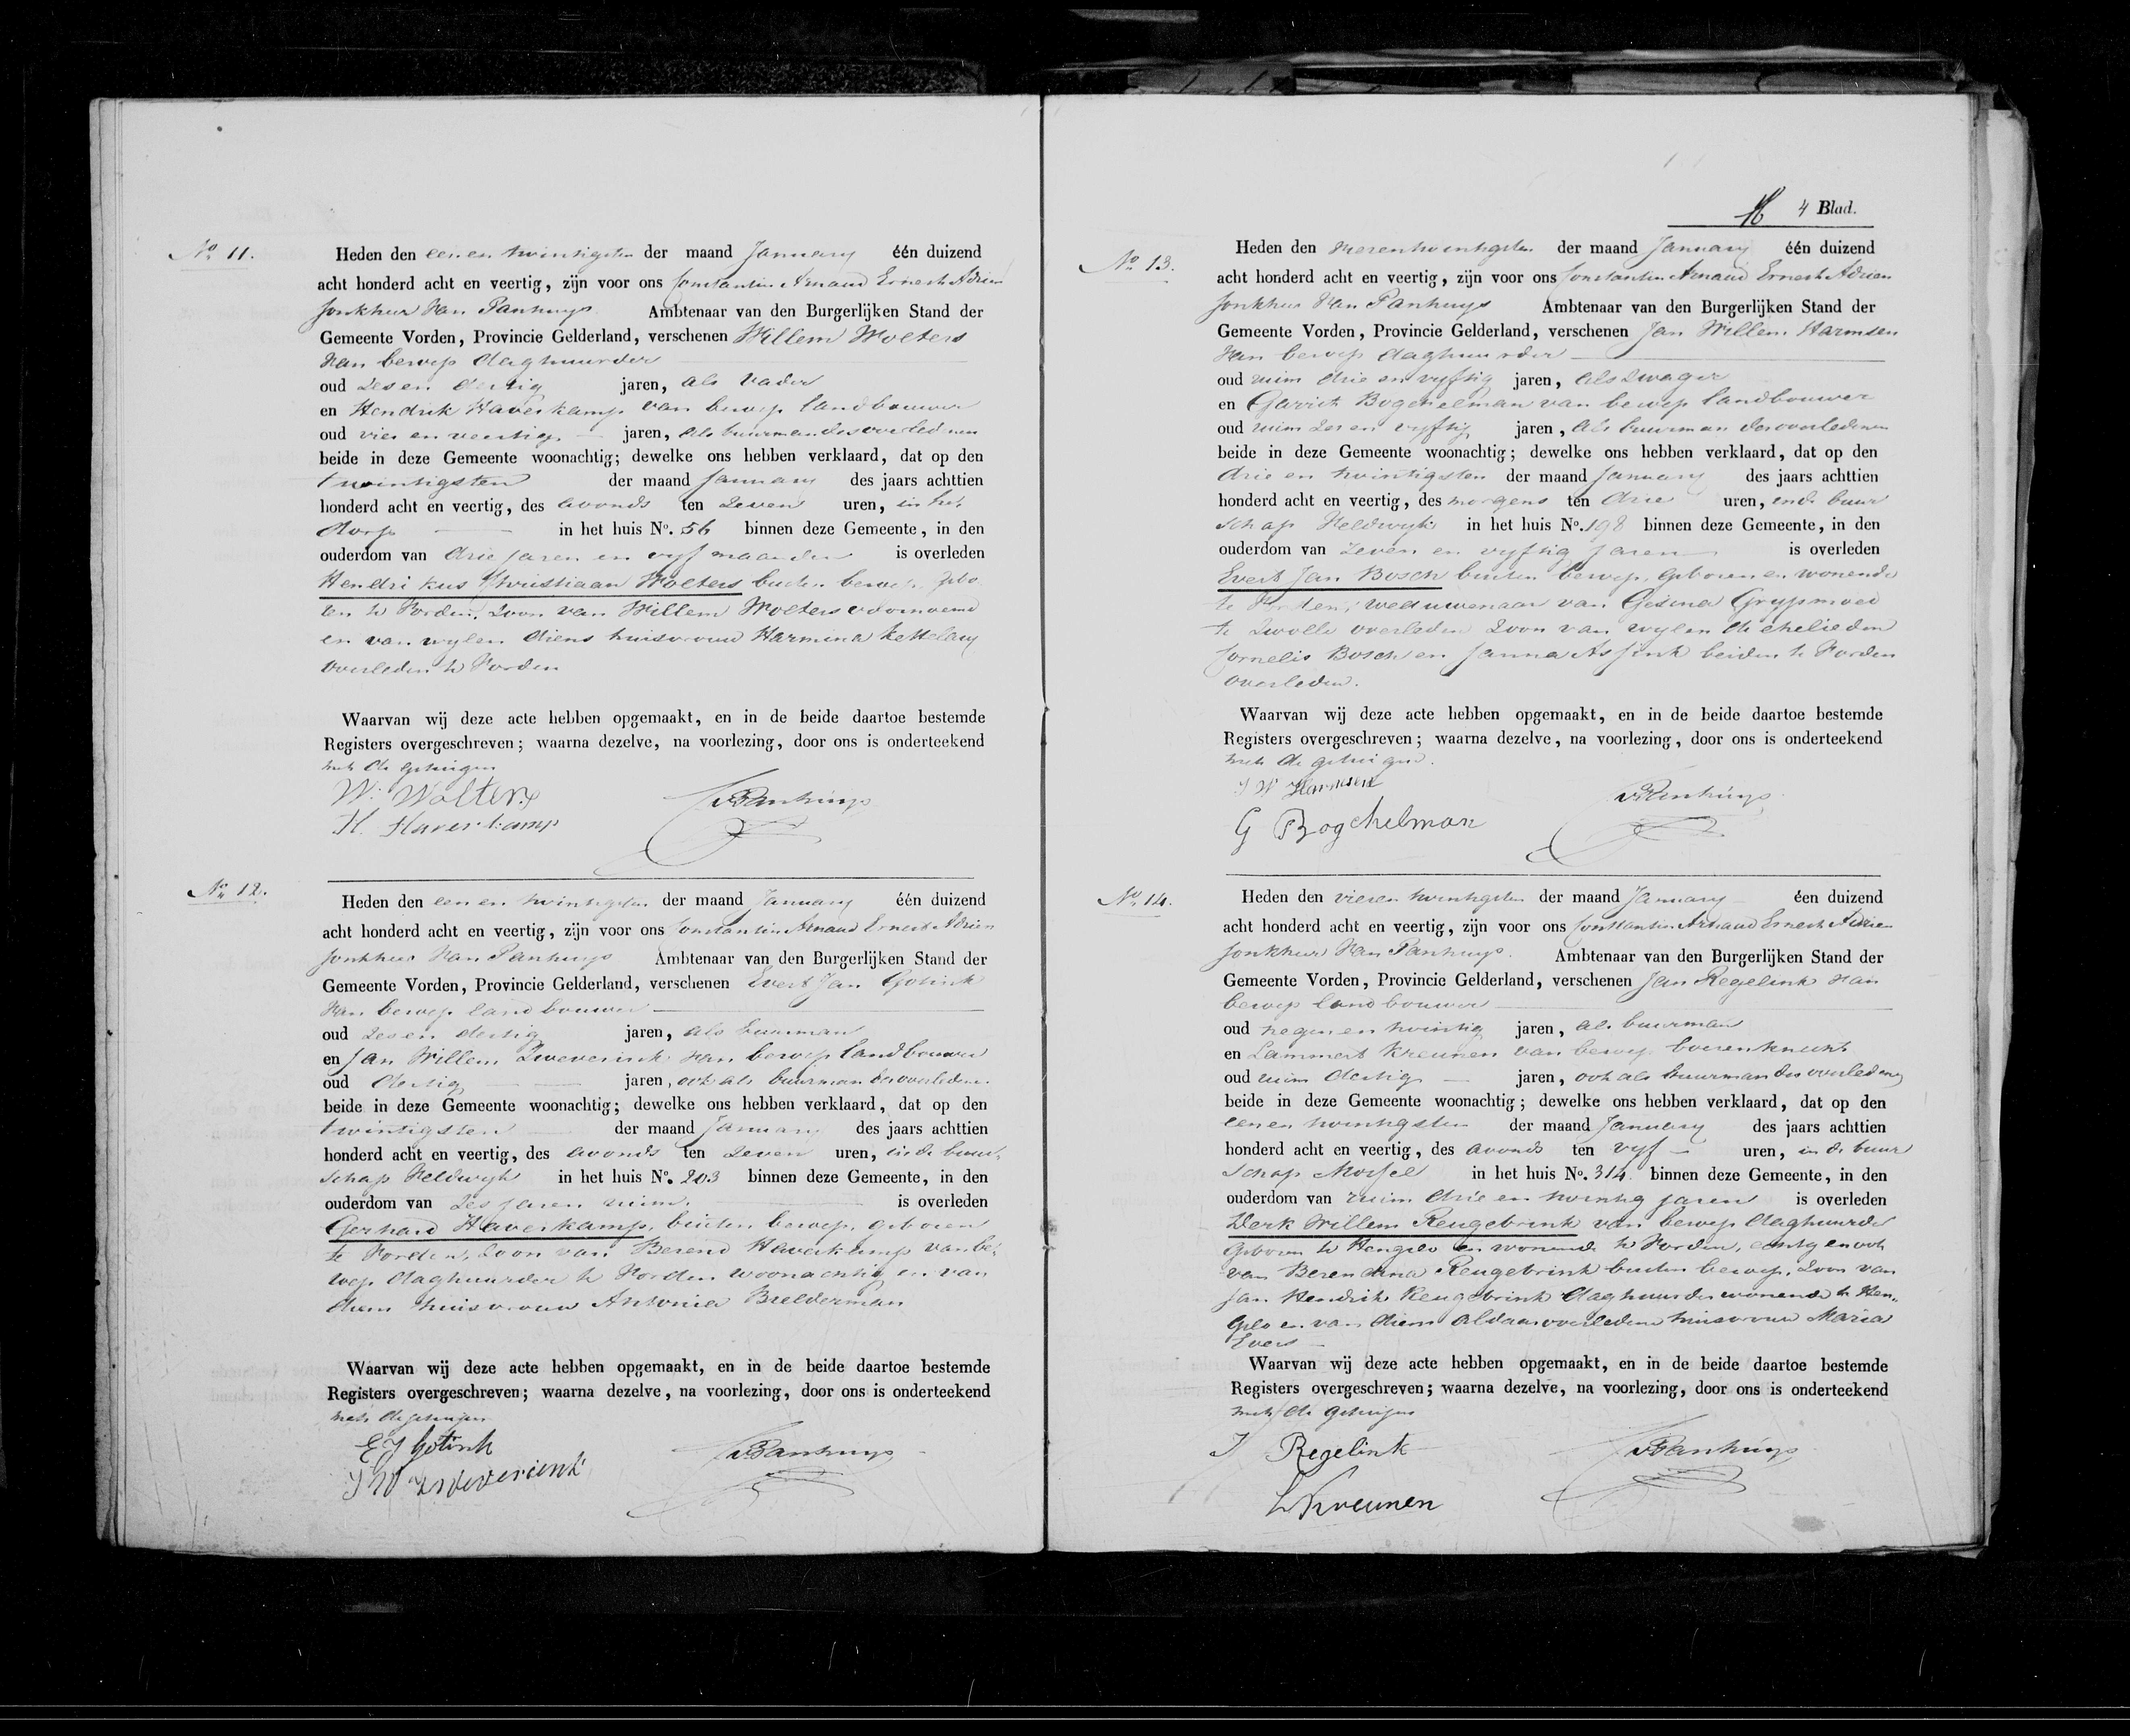 No 11.
Heden den een en twintigsten der maand January één duizend
acht honderd acht en veertig, zijn voor ons Constantin Arnaud Ernest Adrien
Jonkheer Van Panhuys Ambtenaar van den Burgerlijken Stand der
Gemeente Vorden, Provincie Gelderland, verschenen Willem Wolters
Van beroep daghuurder
oud zes en dertig jaren, als Vader
en Hendrik Haverkamp van beroep landbouwer
oud vier en veertig jaren, als buurman des overledenen
beide in deze Gemeente woonachtig; dewelke ons hebben verklaard, dat op den
twintigsten der maand January des jaars achttien
honderd acht en veertig, des avonds ten zeven uren, in het
dorp in het huis No. 56 binnen deze Gemeente, in den
ouderdom van drie jaren en vyf maanden is overleden
Hendrikus Christiaan Wolters buiten beroep, gebo
ren te Vorden, zoon van Willem Wolters voornoemd
en van wylen diens huisvrouw Harmina Kettelary
overleden te Vorden
Waarvan wij deze acte hebben opgemaakt, en in de beide daartoe bestemde
Registers overgeschreven; waarna dezelve, na voorlezing, door ons is onderteekend
met de getuigen
W. Wolters
H. Haverkamp
v Panhuys
No 12.
Heden den een en twintigsten der maand January één duizend
acht honderd acht en veertig, zijn voor ons Constantin Arnaud Ernest Adrien
Jonkheer Van Panhuys Ambtenaar van den Burgerlijken Stand der
Gemeente Vorden, Provincie Gelderland, verschenen Evert Jan Gotink
Van beroep landbouwer
oud zes en dertig jaren, als buurman
en Jan Willem Zweverink van beroep landbouwer
oud dertig jaren, ook als buurman des overledene
beide in deze Gemeente woonachtig; dewelke ons hebben verklaard, dat op den
twintigsten der maand January des jaars achttien
honderd acht en veertig, des avonds ten zeven uren, in de buur
schap Veldwyk in het huis No. 203 binnen deze Gemeente, in den
ouderdom van zes jaren ruim is overleden
Gerhard Haverkamp, buiten beroep, geboren
te Vorden, zoon van Berend Haverkamp van be
roep daghuurder te Vorden woonachtig en van
diens huisvrouw Antonia Brelderman
Waarvan wij deze acte hebben opgemaakt, en in de beide daartoe bestemde
Registers overgeschreven; waarna dezelve, na voorlezing, door ons is onderteekend
met de getuigen
E J Gotink
J W Zweverienk
v Panhuys
4 Blad.
No 13.
Heden den vierentwintigsten der maand January één duizend
acht honderd acht en veertig, zijn voor ons Constantin Arnaud Ernest Adrien
Jonkheer Van Panhuys Ambtenaar van den Burgerlijken Stand der
Gemeente Vorden, Provincie Gelderland, verschenen Jan Willem Harmsen
Van beroep daghuurder
oud ruim drie en vyftig jaren, als zwager
en Garrit Bogchelman van beroep landbouwer
oud ruim zes en vyftig jaren, als buurman des overledenen
beide in deze Gemeente woonachtig; dewelke ons hebben verklaard, dat op den
drie en twintigsten der maand January des jaars achttien
honderd acht en veertig, des morgens ten drie uren, in de buur
schap Veldwyk in het huis No. 198 binnen deze Gemeente, in den
ouderdom van zeven en vyftig jaren is overleden
Evert Jan Bosch buiten beroep, geboren en wonende
te Vorden, weduwenaar van Gesina Grypmoed
te Zwolle overleden zoon van wylen de echelieden
Cornelis Bosch en Janna Assink beiden te Vorden
overleden.
Waarvan wij deze acte hebben opgemaakt, en in de beide daartoe bestemde
Registers overgeschreven; waarna dezelve, na voorlezing, door ons is onderteekend
met de getuigen.
J W Harmsen
G Bogchelman
v Panhuys
No 14.
Heden den vieren twintigsten der maand January éen duizend
acht honderd acht en veertig, zijn voor ons Constantin Arnaud Ernest Adrien
Jonkheer Van Panhuys. Ambtenaar van den Burgerlijken Stand der
Gemeente Vorden, Provincie Gelderland, verschenen Jan Regelink van
beroep landbouwer
oud negen en twintig jaren, als buurman
en Lammert Kreunen van beroep boerenknecht
oud ruim dertig jaren, ook als buurman des overledeney
beide in deze Gemeente woonachtig; dewelke ons hebben verklaard, dat op den
een en twintigsten der maand January des jaars achttien
honderd acht en veertig, des avonds ten vyf uren, in de buur
schap Mossel in het huis No. 314 binnen deze Gemeente, in den
ouderdom van ruim drie en twintig jaren is overleden
Derk Willem Reugebrink van beroep daghuurder
geboren te Hengelo en wonende te Vorden, echtgenoot
van Berendina Reugebrink buiten beroep, zoon van
Jan Hendrik Reugebrink daghuurder wonende te Hen„
gelo en van diens aldaar overledene huisvrouw Maria
Evers
Waarvan wij deze acte hebben opgemaakt, en in de beide daartoe bestemde
Registers overgeschreven; waarna dezelve, na voorlezing, door ons is onderteekend
met de getuigen
J Regelink
L Kreunen
v Panhuys